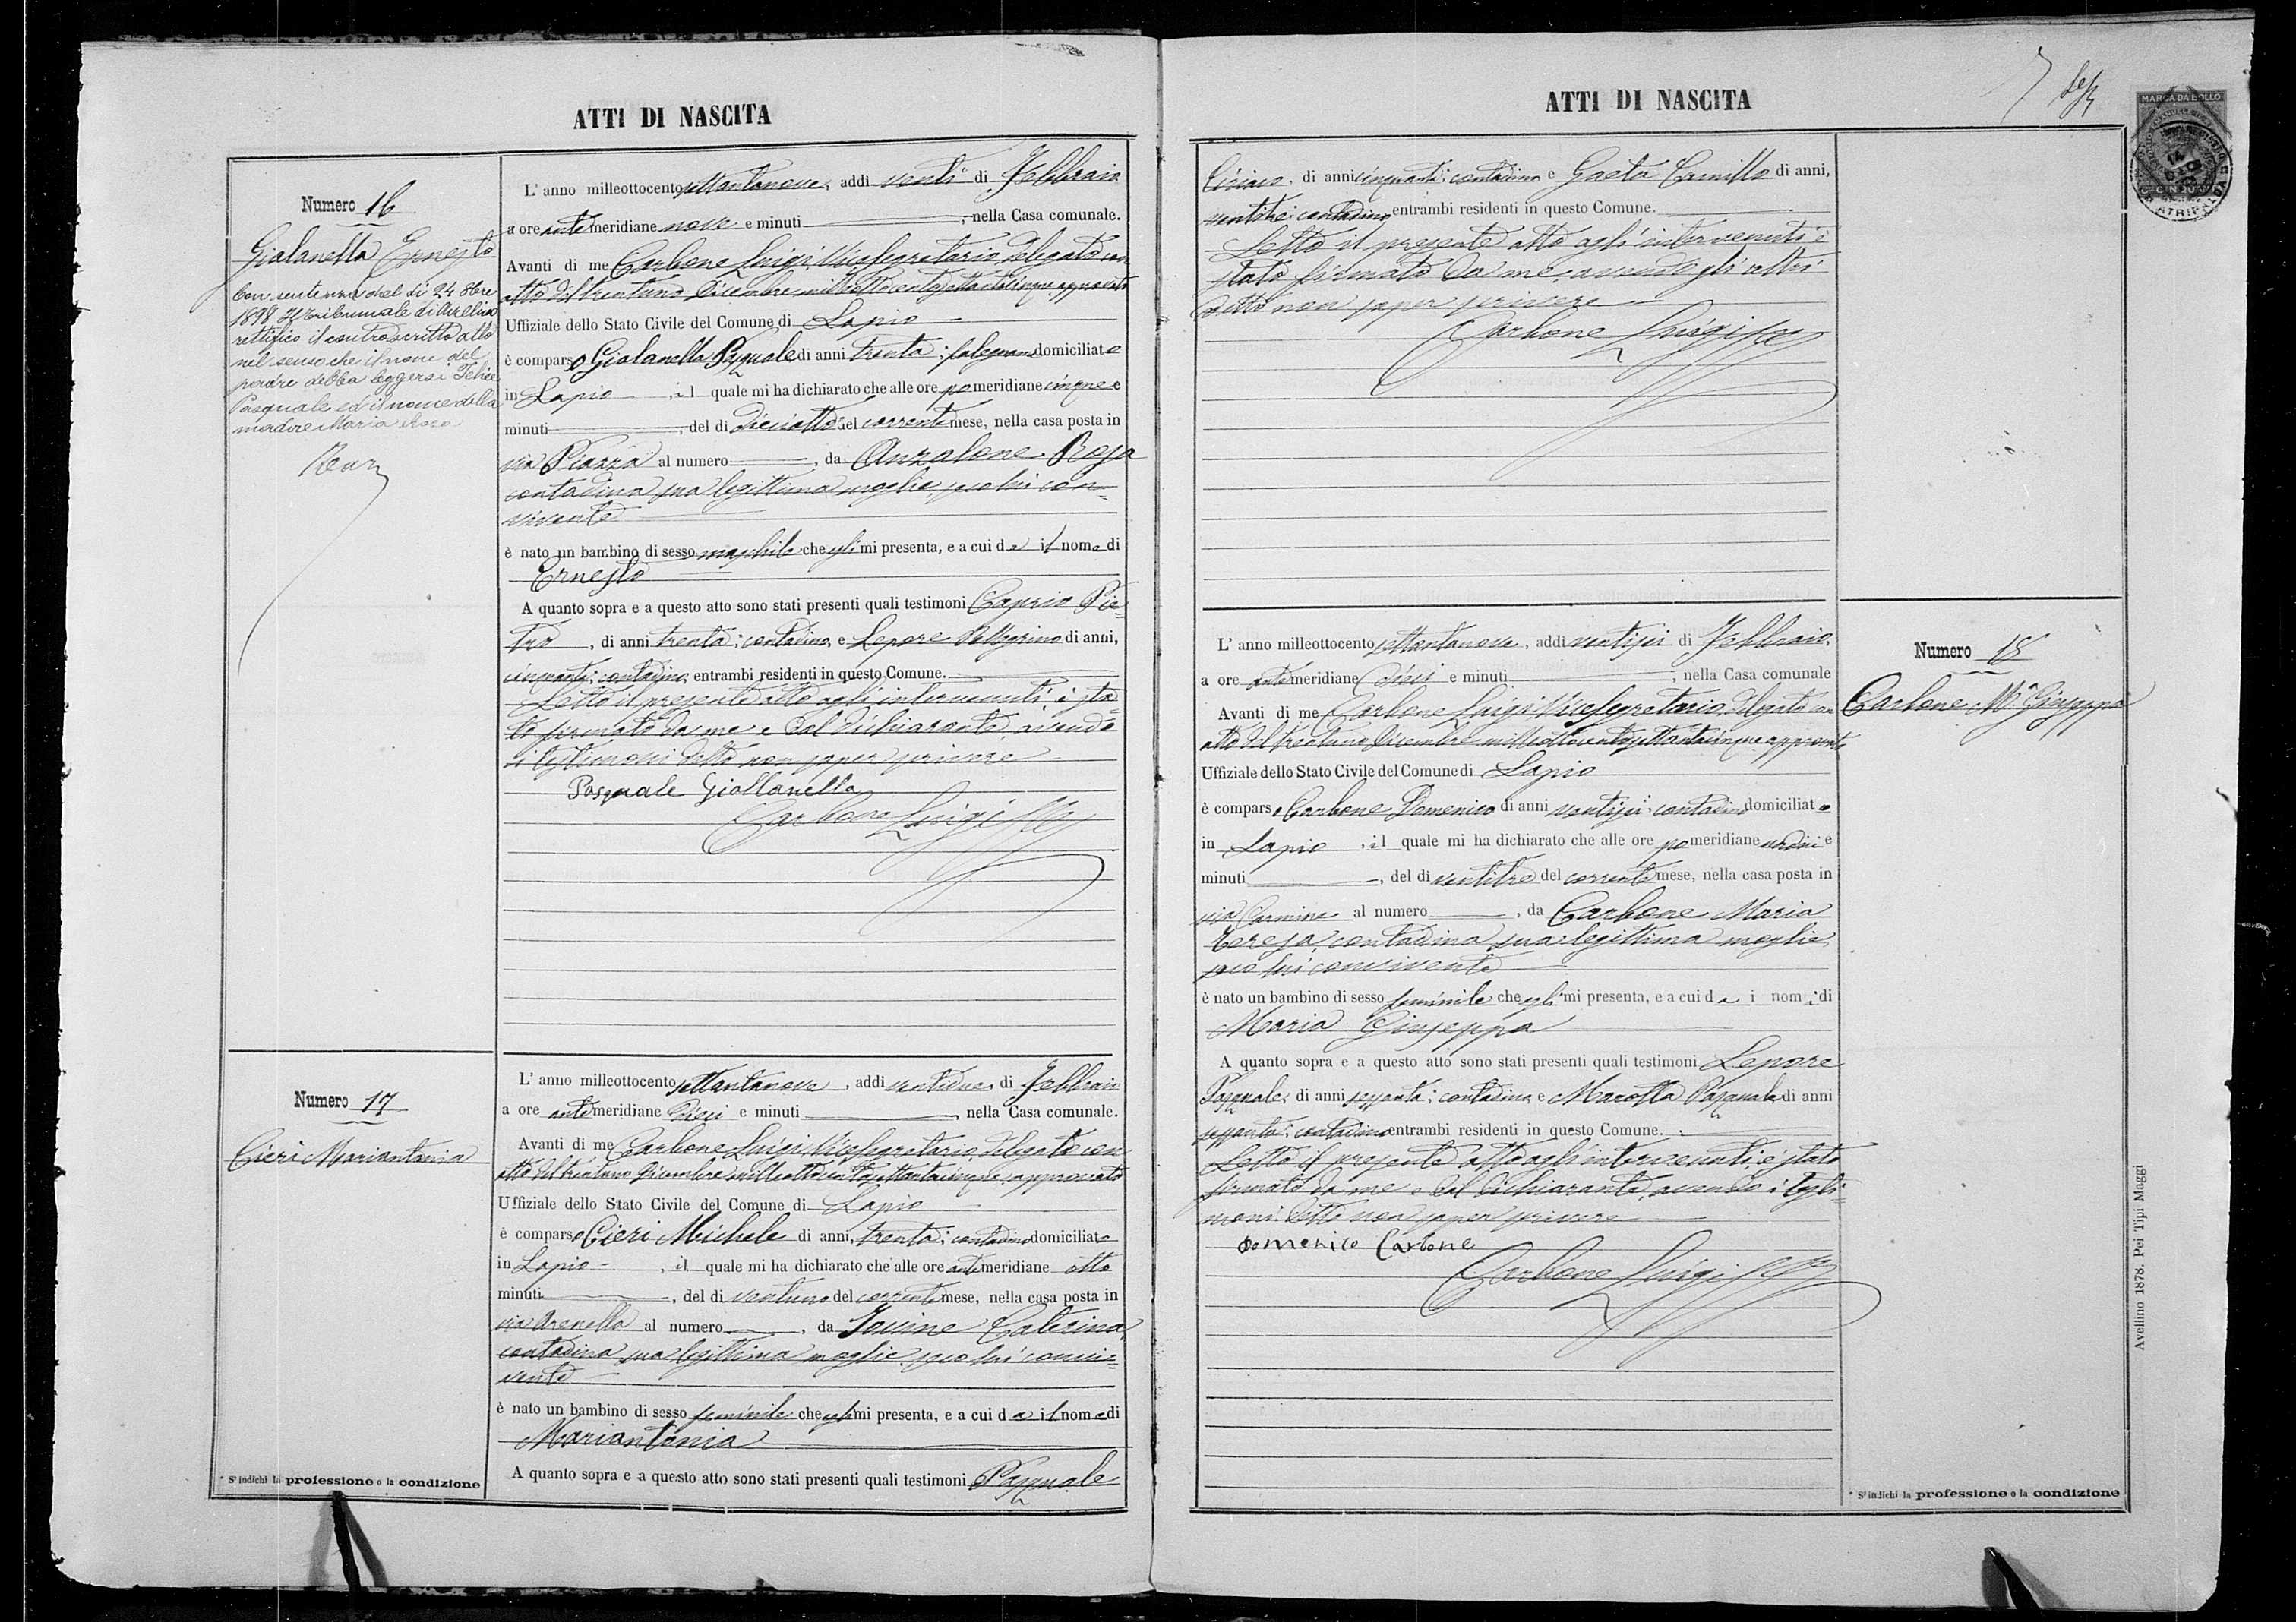 ATTI DI NASCITA
Numero 16
Gialanella Ernesto
Con sentenza del di 24 8bre
1898 il Tribunale di Avellino
rettifico il controscritto atto
nel senso che il nome del
padre debba leggersi Felice
Pasquale ed il nome della
madre Maria Rosa
L' anno milleottocento settantanove, addi venti di Febbraio
a ore antimeridiane nove e minuti , nella Casa comunale.
Avanti di me Carbone Luigi, Vicesegretario, delegato con
atto del trentuno Dicembre milleottocentosettantacinque approvato
Uffiziale dello Stato Civile del Comune di Lapio
è comparso Gialanella Pasquale di anni trenta; falegname domiciliato
in Lapio , il quale mi ha dichiarato che alle ore pomeridiane cinque e
minuti , del di dieciotto del corrente mese, nella casa posta in
via Piazza al numero , da Anzalone Rosa
contadina sua legittima moglie, seco lui con=
vivente
è nato un bambino di sesso maschile che egli mi presenta, e a cui da il nome di
Ernesto
A quanto sopra e a questo atto sono stati presenti quali testimoni Caprio Pie=
tro , di anni trenta; contadino, e Lepore Pellegrino di anni,
cinquanta; contadino, entrambi residenti in questo Comune.
Letto il presente atto agli intervenuti, è sta=
to firmato da me e dal dichiarante, avendo
i testimoni detto non saper scrivere
Pasquale Giallanella
Carbone Luigi
Numero 17
Cieri Mariantonia
L' anno milleottocento settantanove, addi ventidue di Febbraio
a ore antimeridiane dieci e minuti , nella Casa comunale.
Avanti di me Carbone Luigi, Vicesegretario delegato con
atto del trentuno Dicembre milleottocentosettantacinque, approvato
Uffiziale dello Stato Civile del Comune di Lapio
è comparso Cieri Michele di anni, trenta; contadino domiciliato
in Lapio , il quale mi ha dichiarato che alle ore antimeridiane otto
minuti , del di ventuno del corrente mese, nella casa posta in
via Arenella al numero , da Iovine Caterina,
contadina sua legittima moglie, seco lui convi=
vente
è nato un bambino di sesso feminile che egli mi presenta, e a cui da il nome di
Mariantonia
A quanto sopra e a questo atto sono stati presenti quali testimoni Pasquale
* S' indichi la professione o la condizione
ATTI DI NASCITA
7
MARCA DA BOLLO
ATRIPALDA
Ciriaco, di anni cinquanta; contadino e Gaeta Camillo di anni,
ventitre; contadino, entrambi residenti in questo Comune.
Letto il presente atto agli intervenuti è
stato firmato da me, avendo gli altri
detto non saper scrivere
Carbone Luigi
Numero 18
Carbone Mª Giuseppa
L' anno milleottocento settantanove, addi ventisei di Febbraio,
a ore antimeridiane dieci e minuti , nella Casa comunale
Avanti di me Carbone Luigi, Vicesegretario, delegato con
atto del trentuno Dicembre milleottocentosettantacinque approvato
Uffiziale dello Stato Civile del Comune di Lapio
è comparso Carbone Domenico di anni ventisei; contadino domiciliato
in Lapio , il quale mi ha dichiarato che alle ore pomeridiane undici e
minuti , del di ventitre del corrente mese, nella casa posta in
via Carmine al numero , da Carbone Maria
Teresa, contadina, sua legittima moglie,
seco lui convivente
è nato un bambino di sesso feminile che egli mi presenta, e a cui da i nomi di
Maria Giuseppa
A quanto sopra e a questo atto sono stati presenti quali testimoni Lepore
Pasquale, di anni sessanta; contadino, e Marotta Pasquale di anni
sessanta; contadino entrambi residenti in questo Comune.
Letto il presente atto agli intervenuti, è stato
firmato da me e dal dichiarante, avendo i testi=
moni detto non saper scrivere
Domenico Carbone
Carbone Luigi
* S' indichi la professione o la condizione
Avellino 1878. Pei Tipi Maggi